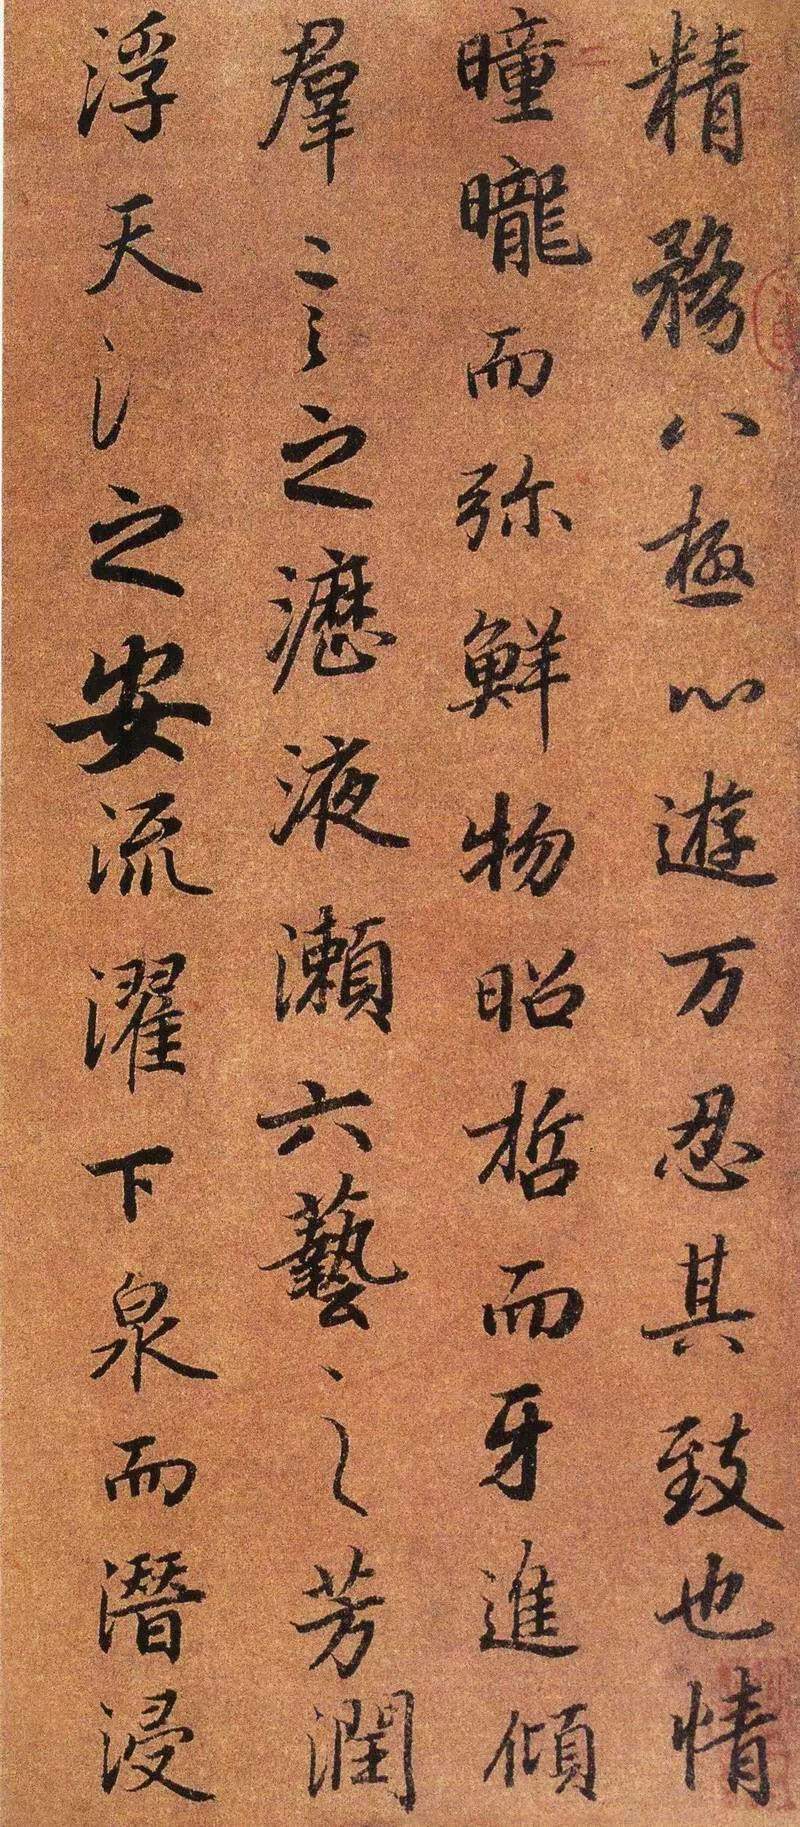 精務八極心遊万忍其致也情
曈曨而弥鮮物昭哲而牙進傾
羣言之瀝液瀬六藝之芳潤
浮天氵之安流濯下泉而潛浸